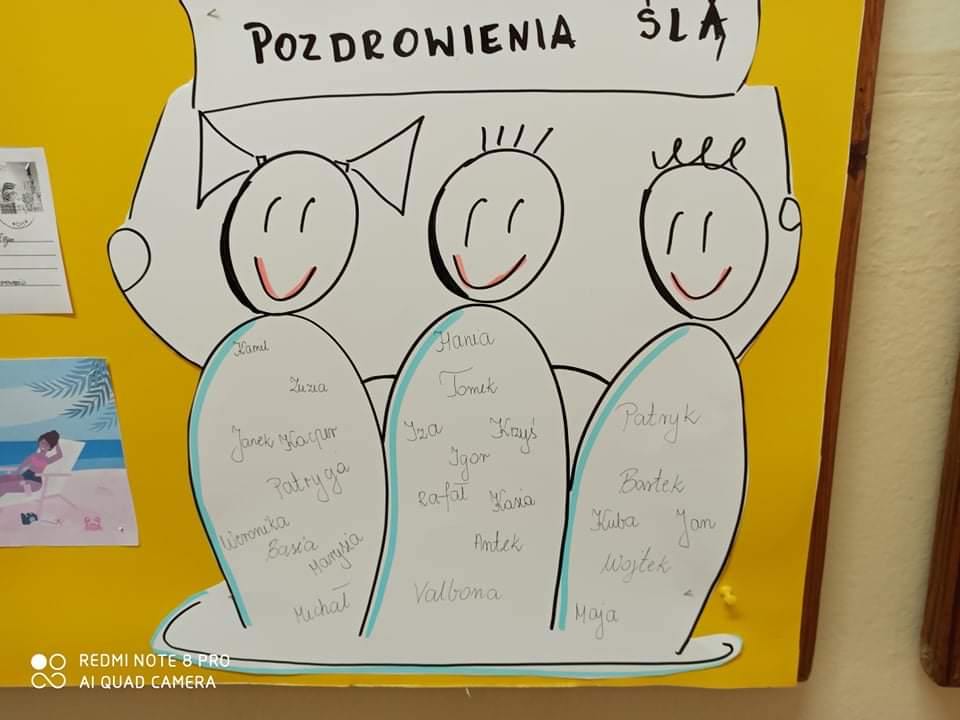 POZDROWIENIA ŚLĄ
Kamil
Zuzia
Janek Kacper
Patrycja
Weronika
Basia
Marysia
Michał
Hania
Tomek
Iza Krzyś
Igor
Rafał Kasia
Antek
Valbona
Patryk
Bartek
Kuba Jan
Wojtek
Maja
REDMI NOTE 8 PRO
AI QUAD CAMERA